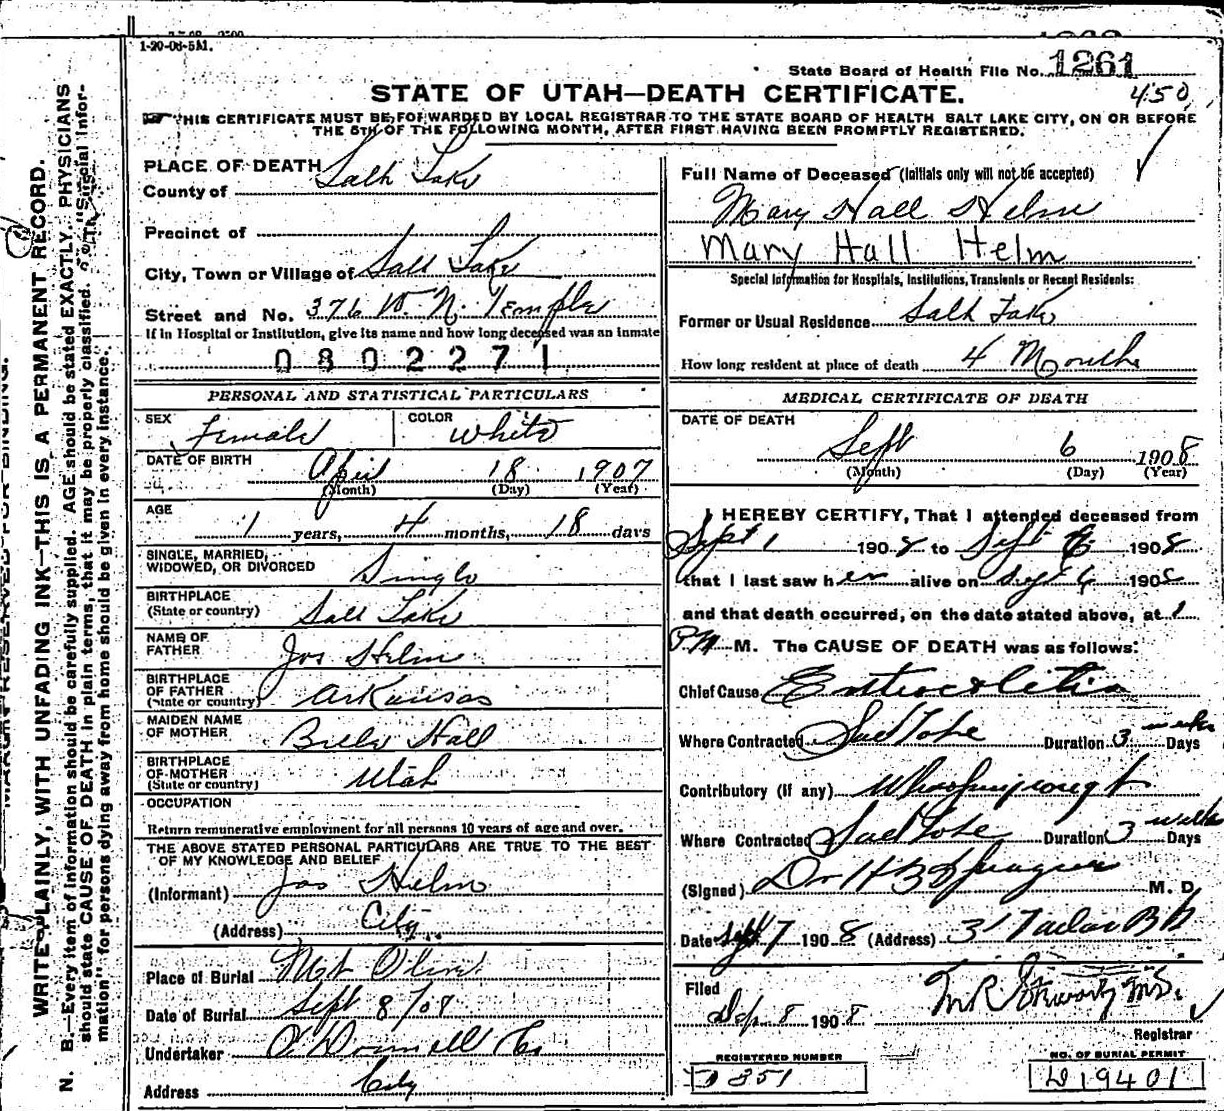 1-20-08-5M.
State Board of Health File No. 1261
450
STATE OF UTAH—DEATH CERTIFICATE.
THIS CERTIFICATE MUST BE FORWARDED BY LOCAL REGISTRAR TO THE STATE BOARD OF HEALTH SALT LAKE CITY, ON OR BEFORE
THE 5TH OF THE FOLLOWING MONTH, AFTER FIRST HAVING BEEN PROMPTLY REGISTERED.
WRITE PLAINLY, WITH UNFADING INK—THIS IS A PERMANENT RECORD.
N. B.—Every item of information should be carefully supplied. AGE should be stated EXACTLY. PHYSICIANS
should state CAUSE OF DEATH in plain terms, that it may be properly classified. The "Special Infor-
mation" for persons dying away from home should be given in every instance.
PLACE OF DEATH
County of Salt Lake
Precinct of
City, Town or Village of Salt Lake
Street and No. 376 W. N. Temple
If in Hospital or Institution, give its name and how long deceased was an inmate
0802271
PERSONAL AND STATISTICAL PARTICULARS
SEX Female COLOR White
DATE OF BIRTH April 18 1907
(Month) (Day) (Year)
AGE 1 years, 4 months, 18 days
SINGLE, MARRIED,
WIDOWED, OR DIVORCED Single
BIRTHPLACE
(State or country) Salt Lake
NAME OF
FATHER Jos Helm
BIRTHPLACE
OF FATHER
(State or country) Arkansas
MAIDEN NAME
OF MOTHER Hall
BIRTHPLACE
OF MOTHER
(State or country) Utah
OCCUPATION
Return remunerative employment for all persons 10 years of age and over.
THE ABOVE STATED PERSONAL PARTICULARS ARE TRUE TO THE BEST
OF MY KNOWLEDGE AND BELIEF
(Informant) Jos Helm
(Address) City
Place of Burial Mt Olivet
Date of Burial Sept 8/08
Undertaker O'Donnell Co
Address City
Full Name of Deceased (Initials only will not be accepted)
Mary Hall Helm
Mary Hall Helm
Special Information for Hospitals, Institutions, Transients or Recent Residents:
Former or Usual Residence Salt Lake
How long resident at place of death 4 Months
MEDICAL CERTIFICATE OF DEATH
DATE OF DEATH
Sept 6 1908
(Month) (Day) (Year)
I HEREBY CERTIFY, That I attended deceased from
Sept 1 1908 to Sept 6 1908
that I last saw her alive on Sept 6 1908
and that death occurred, on the date stated above, at 1
PM M. The CAUSE OF DEATH was as follows:
Chief Cause Enterocolitis
Where Contracted Salt Lake Duration 3 weeks Days
Contributory (if any) Whooping cough
Where Contracted Salt Lake Duration 3 weeks Days
(Signed) Dr H B Sprague M. D.
Date Sept 7 1908 (Address)
Filed
Sep. 8 1908
Registrar
REGISTERED NUMBER
D 351
NO. OF BURIAL PERMIT
D 19401